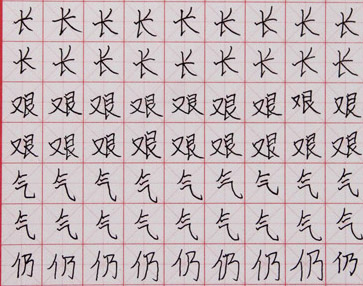 长长长长长长长长长
长长长长长长长长长
艰艰艰艰艰艰艰艰艰
艰艰艰艰艰艰艰艰艰
气气气气气气气气气
气气气气气气气气气
仍仍仍仍仍仍仍仍仍